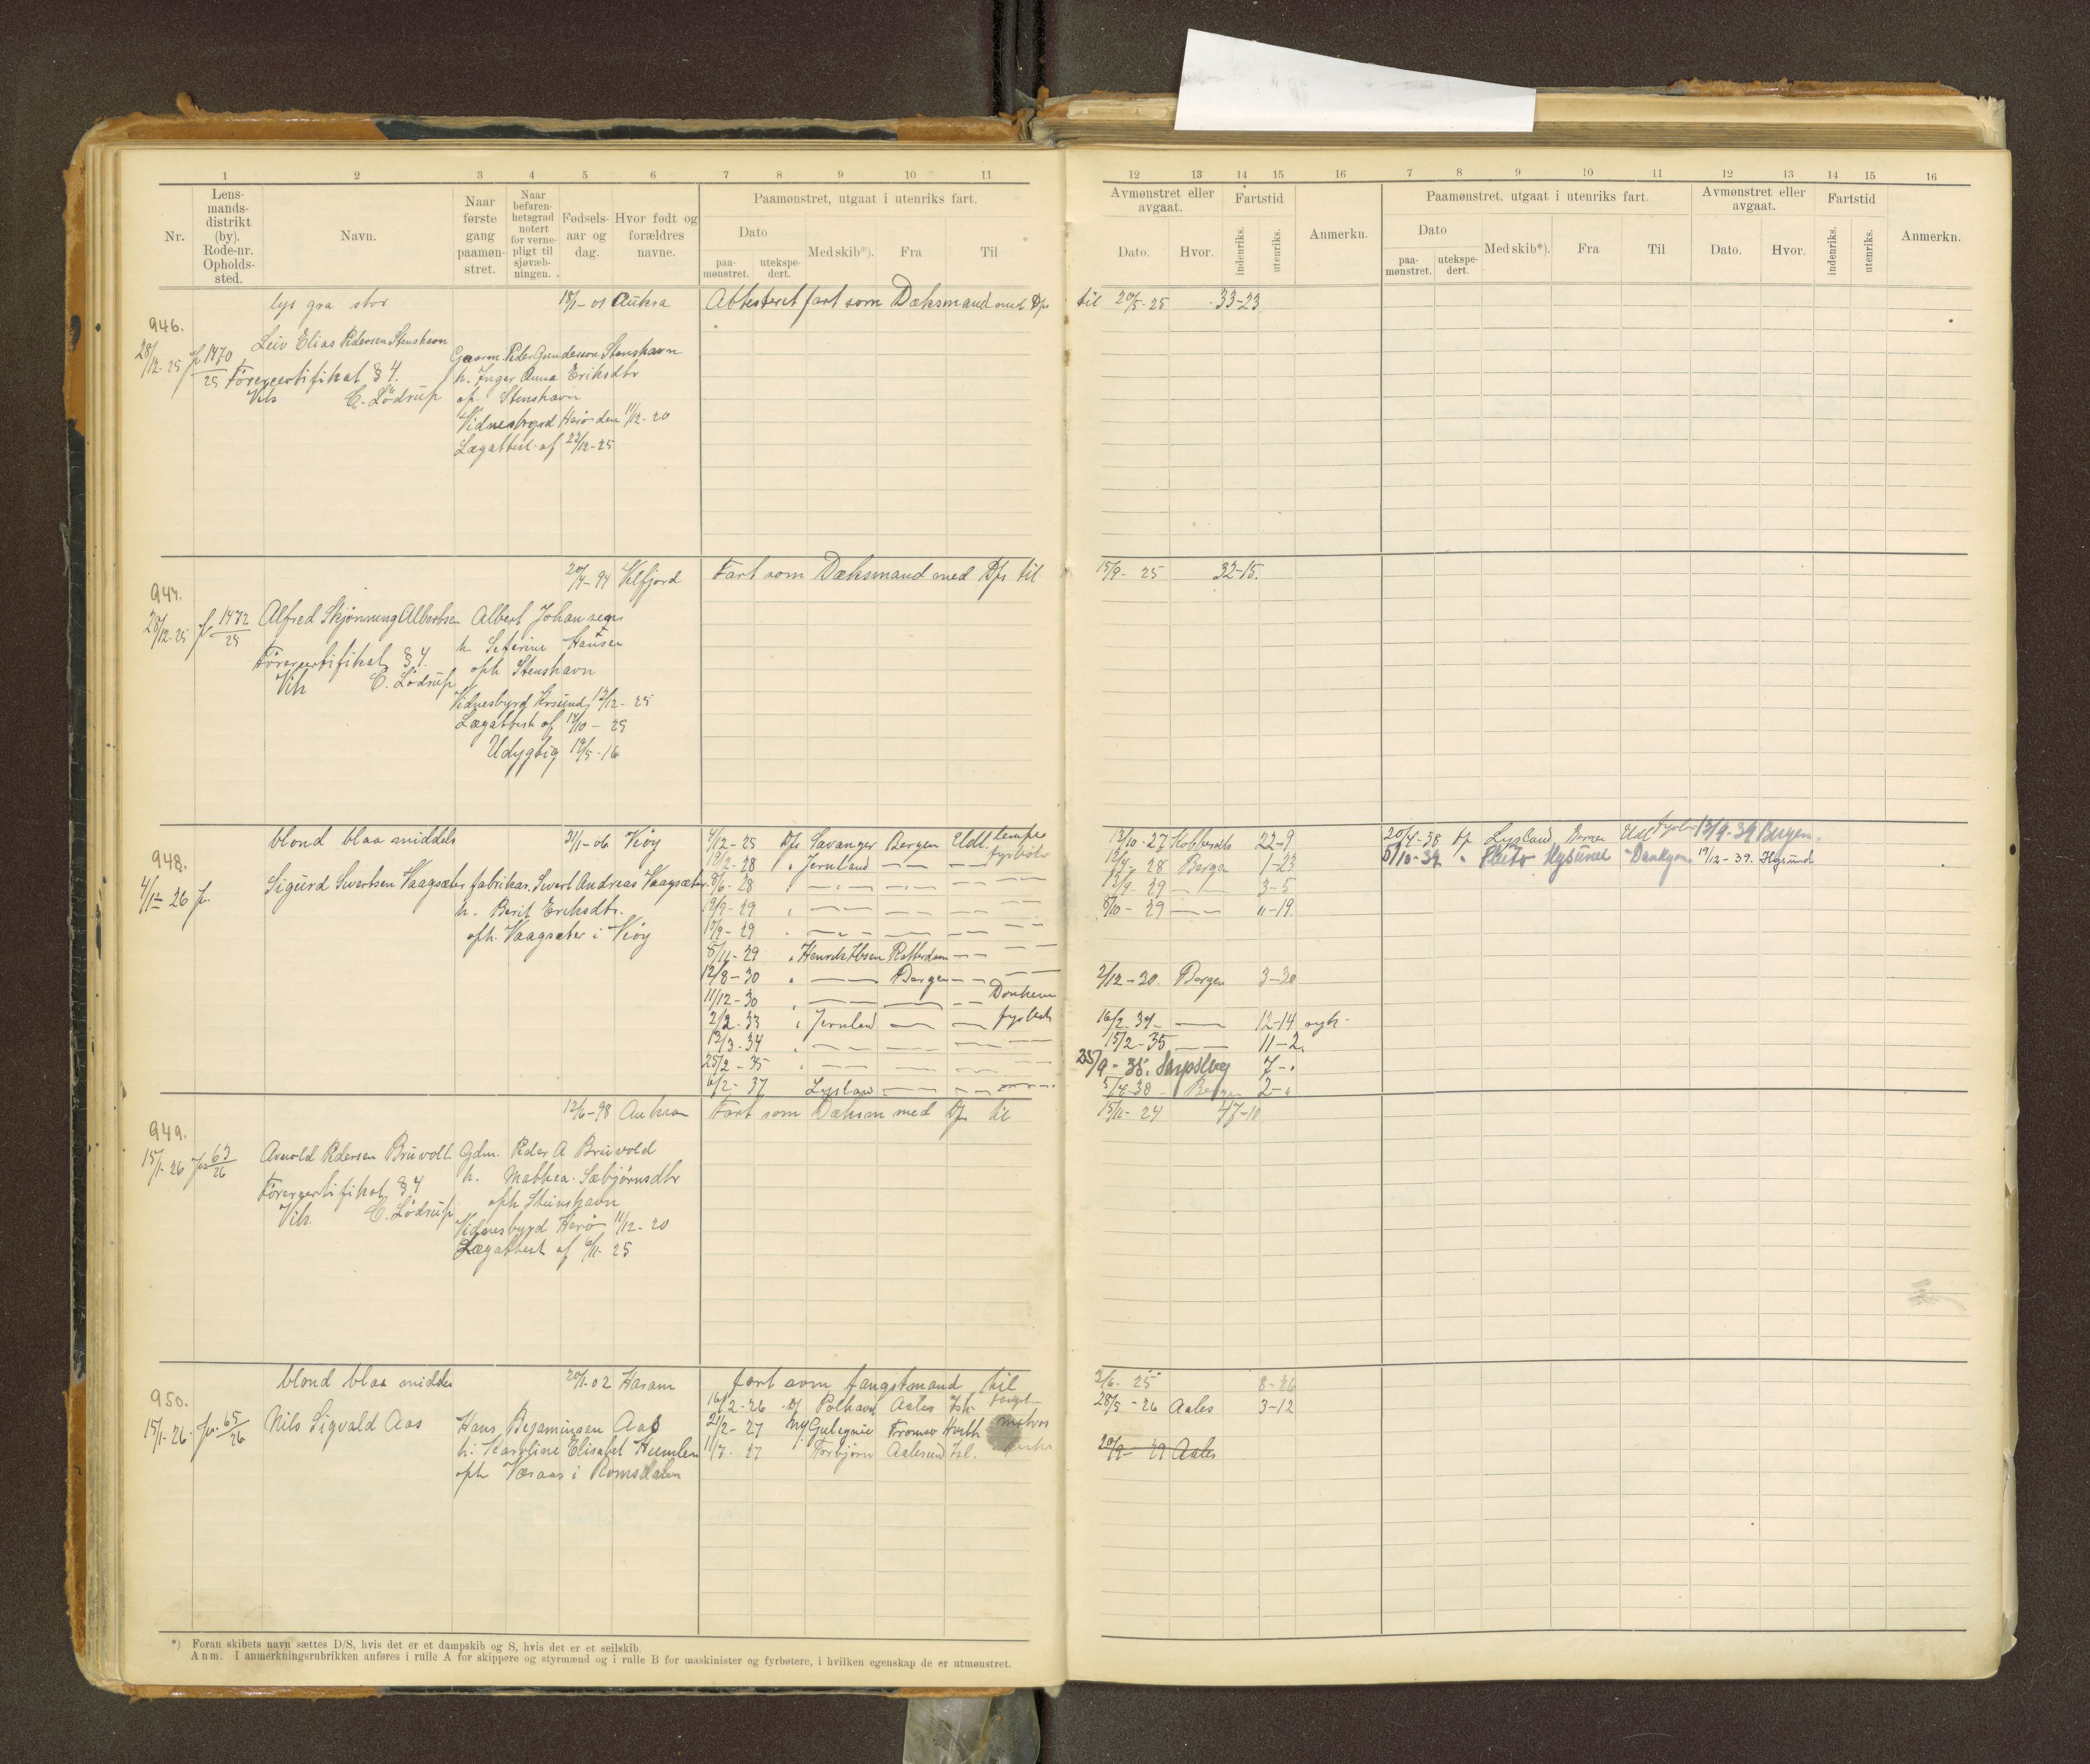 1 2 3 4 5 6 7 8 9 10 11
Nr.
Lensmandsdistrikt (by). Rode-nr. Opholdssted.
Navn.
Naar første gang paamønstret.
Naar befarenhetsgrad notert for vernepligt til sjøvæbningen.
Fødselsaar og dag.
Hvor født og forældres navne.
Paamønstret, utgaat i utenriks fart.
Dato
paamønstret. utekspedert.
Med skib*). Fra Til
12 13 14 15 16 7 8 9 10 11 12 13 14 15 16
Avmønstret eller avgaat. Fartstid
Dato. Hvor. indenriks. utenriks. Anmerkn.
Paamønstret, utgaat i utenriks fart.
Dato
paamønstret. utekspedert. Med skib*). Fra Til
Avmønstret eller avgaat. Fartstid
Dato. Hvor. indenriks. utenriks. Anmerkn.
lys gra stor 18/1-01 Aukra Attesteret fart som Dæksmand med D/s til 20/5-25 33-23
946.
28/12-25 fr 1470/25 Leiv Elias Pedersen Stenshavn
Gaarm. Peder Gunderson Stenshavn
Førercertifikat § 4. h. Inger Anna Eriksdtr
Vib C. Lödrup op. Stenshavn
Vidnesbyrd Herö den 11/12-20
Lægattest af 22/12-25
20/4-94 Velfjord Fart som Dæksmand med D/s til 15/9-25 32-15.
947.
28/12-25 fr 1472/25 Alfred Skjönnung Albertsen Albert Johansen
h. Seferine Hansen
Førercertifikat § 4. oph Stenshavn
Vib C. Lödrup
Vidnesbyrd Krsund 12/12-25
Lægattest af 14/10-25
Udygtig 19/5-16
blond blaa middels 31/1-06 Veöy 4/12-25 D/s Savanger Bergen Udl. lempe 13/10-27 Kobbervik 22-9
948.
4/1-26 fr. Sigurd Sivertsen Vaagsæter fabrikar. Sivert Andreas Vaagsæter
h. Berit Eriksdtr.
oph. Vaagsæter i Veöy
13/2-28 " Jernland — — fyrböter 12/4-28 Bergen 1-23
8/6-28 — — — 12/9-29 — 3-5
19/9-29 — — — 8/10-29 — "-19
17/9-29 — — —
5/11-29 " Henrik Ibsen Rotterdam — —
12/8-30 " — Bergen — — 2/12-30. Bergen 3-20
11/12-30 — — — Donkem
2/2-33 " Jernland — — fyrböt 16/2-34 — 12-14 syk.
13/3-34 — — — 15/2-35 — 11-2.
25/2-35 — — — 25/9-35. Sarpsborg 7-"
6/2-37 Lysland — — 5/4-38 Bergen 2-"
20/4-38 D/s Lysland Bergen Udl fyrb 13/9-39 Bergen.
5/10-39. " Pluto Hysund - Donkym. 19/12-39. Hysund
12/6-98 Aukra Fart som Dæksm med D/s til 15/11-24 47-10
949.
15/1-26 fr. 63/26 Arnold Pedersen Bruvoll Gdm. Peder A Bruvold
h. Mathea Sæbjørnsdtr
Førercertifikat § 4 oph Steinshavn
Vib. C. Lödrup
Vidnesbyrd Herö 11/12-20
Lægattest af 6/11-25
blond blaa middels 20/1-02 Haram fart som fangstmand til 2/6-25 8-26
950.
15/1-26 fr. 65/26 Nils Sigvald Aas
Hans Benjaminsen Aas
h. Karoline Elisabet Humlen
oph Væraas i Romsdalen
16/2-26 D/s Polhavet Aales Ish. fangst 28/5-26 Aales 3-12
21/2-27 M/ Tromsö Hvith matros
11/7-27 Torbjörn Aalesund Isl. 20/9-29 Aales
*) Foran skibets navn sættes D/S, hvis det er et dampskib og S, hvis det er et seilskib.
Anm. I anmerkningsrubrikken anføres i rulle A for skippere og styrmænd og i rulle B for maskinister og fyrbøtere, i hvilken egenskap de er utmønstret.